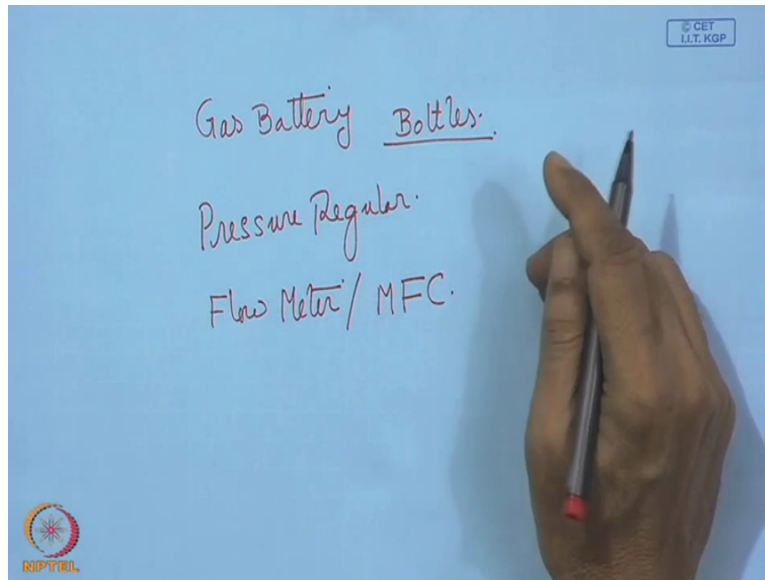 © CET
I.I.T. KGP
Gas Battery Bottles.
Pressure Regular.
Flow Meter / MFC.
NPTEL